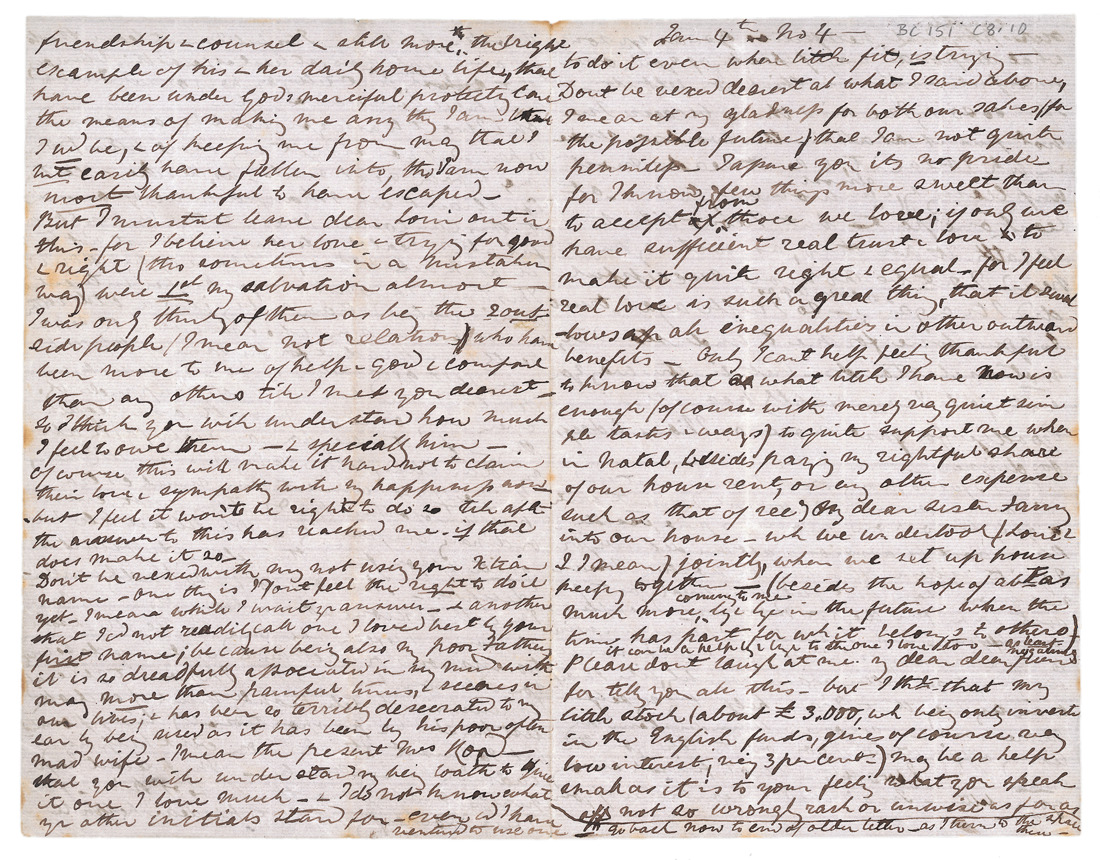 friendship & counsel & still more, the bright
example of his & her daily home life, that
have been under God's merciful protecting care
the means of making me any thg I am
I wd be, & of keeping me from may that I
mt easily have fallen into, tho' I am now
most thankful to have escaped –
But I mustnt leave dear out in
this – for I believe her love & trying for good
& right (tho sometimes in a mistaken
way) were 1st my salvation almost –
I was only thinkg of them as beig the 2 out
side people (I mean not relations) who have
been more to me of help & good & comfort
than any others till I met you dearest –
so I think you will understand how much
I feel to owe them – & specially him –
Of course this will make it hard not to claim
their love & sympathy with my happiness now –
but I feel it won't be right to do so till aft
the answer to this has reached me – if that
does make it so –
Don't be vexed with my not using your Xtian
name – one thg is I don't feel the right to do it
yet – I mean while I wait yr answer – & another
that I cd not readily call one I loved best by your
first name; because being also my poor Father's
it is so dreadfully associated in my mind with
may more than painful times, & scenes in
our lives, & has been so terribly desecrated to my
ear by being used as it has been by his poor often
mad wife – I mean the present Mrs
that you will understand my being loath to give
it one I love much – & I do not know what
yr other initials stand for – even cd I have
ventured to use one
Jan 4th No 4 – BC 151 C8:10
to do it even when little fit, is trying –
Dont be vexed dearest at what I said above,
I mean at my gladness for both our sakes (for
the possible future) that I am not quite
penniless – I assure you its no pride
for I know few things more sweet than
to accept from those we love; if only we
have sufficient real trust & love to
make it quite right & equal – for I feel
real love is such a great thing, that it swal
lows up all inequalities in other outward
benefits – Only I can't help feeling thankful
to know that what little I have now is
enough (of course with merely vey quiet sim
ple tastes & ways) to quite support me when
in Natal, besides paying my rightful share
of our house rent, or any other expense
such as that of my dear sister Fanny
into our house – wh we understood (Louie
& I mean) jointly, when we set up house
keepg together – (beside the hope of abt as
much more, coming to me in the future when the
time has past for wh it belongs to others)
it can be a help to the one I love too –
Please dont laugh at me my dear dear friend
for tellg you all this – but I thk that my
little stock (about £3,000, wh being only investe
in the English funds, gives of course vey
low interest, vey 3 per cents) may be a help
small as it is to your feelg what you speak
off not so wrong, rash or unwise as far as
go back now to end of older letter – as I turn to the